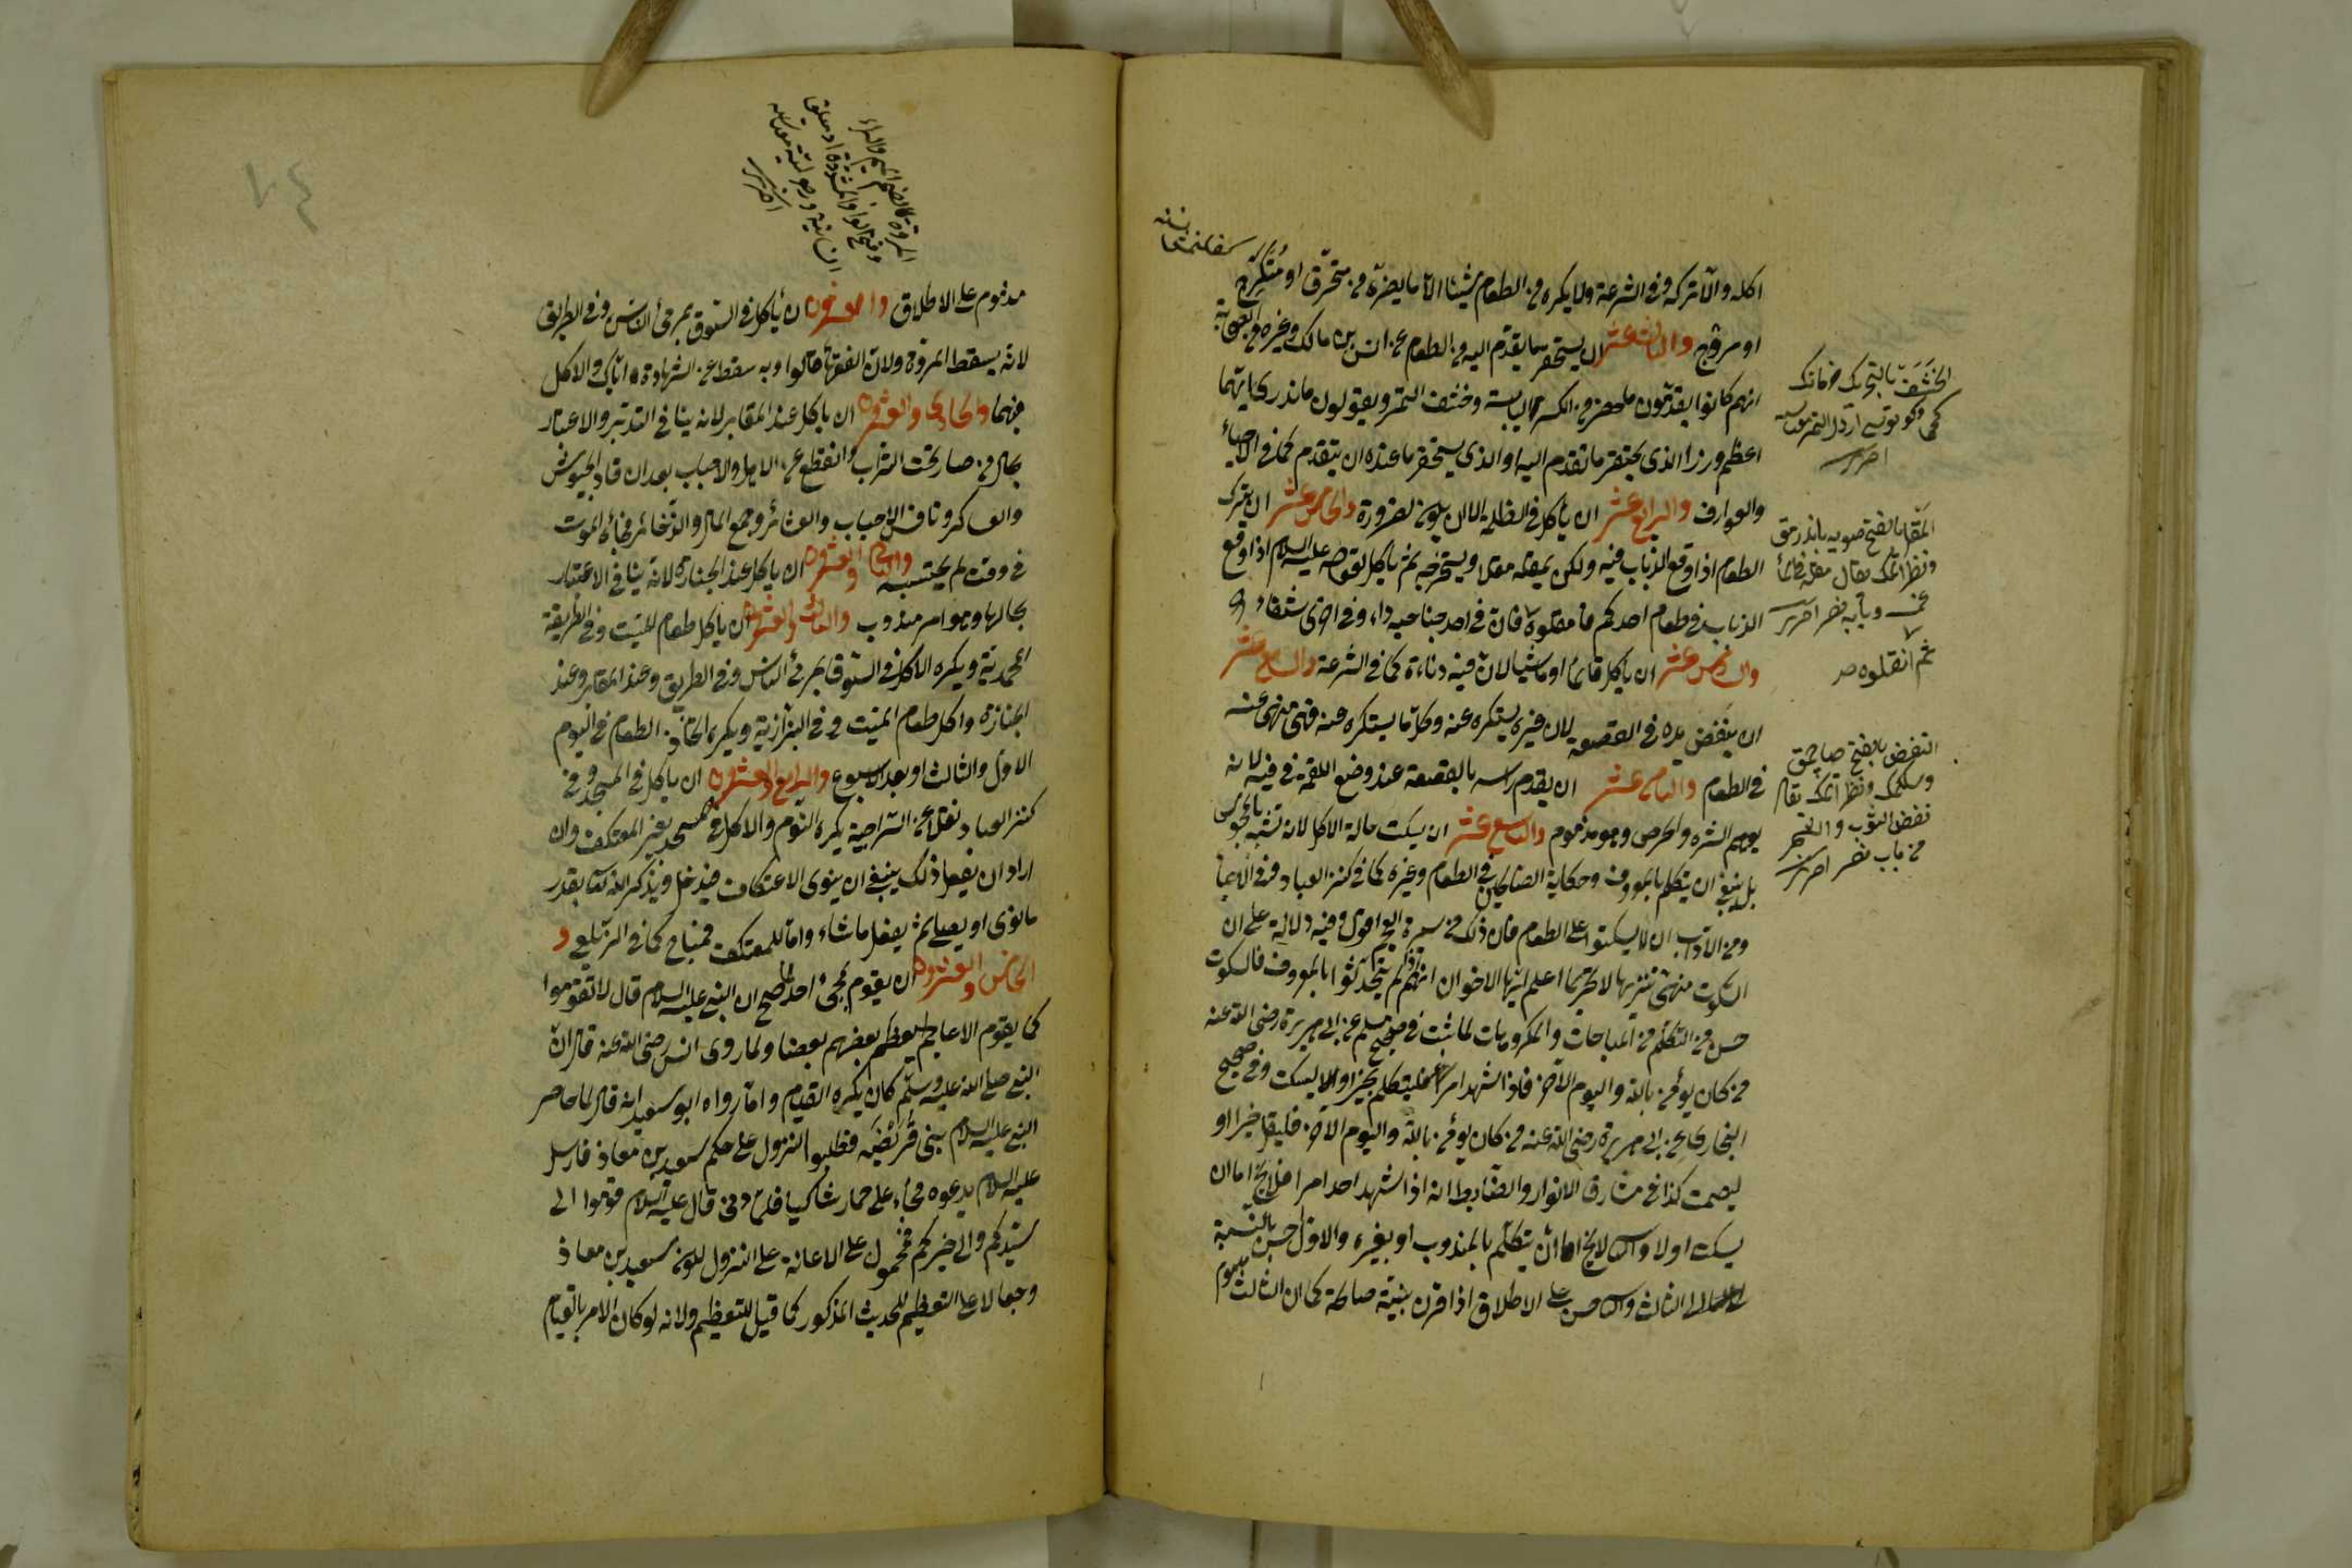 اكله والا تركه وفى الشرعة ولا يكره من الطعام شيئا الا ما يضره من متحرق او متكرج
او مروح والثالث عشر ان يستحقر ما يقدم اليه من الطعام عن انس بن مالك وغيره من الصحابة
انهم كانوا يقدمون ما حضر من الكسر اليابسة وخشف التمر ويقولون ما ندرى ايهما
اعظم وزرا الذى يحتقر ما تقدم اليه او الذى يستحقر ما عنده ان يقدم كما فى الاحياء
والعوارف والرابع عشر ان يأكل فى الظلمة الا ان يكون لضرورة والخامس عشر ان يترك
الطعام اذا وقع الذباب فيه ولكن يمقله مقلا ويستخرجه ثم يأكل لقوله عليه السلام اذا وقع
الذباب فى طعام احدكم فامقلوه فان فى احد جناحيه داء وفى اخرى شفاء
والسادس عشر ان يأكل قائما او ماشيا لان فيه دناءة كما فى الشرعة والسابع عشر
ان ينفض يده فى القصعة لان غيره يستكره عنه وكل ما يستكره عنه فهى منهى عنه
فى الطعام والثامن عشر ان يقدم رأسه بالقصعة عند وضع اللقمة فى فيه لانه
يوهم الشره والحرص وهو مذموم والتاسع عشر ان يسكت حالة الاكل لانه تشبه بالمجوس
بل ينبغى ان يتكلم بالمعروف وحكاية الصالحين فى الطعام وغيره كما فى كنز العباد وفى الاحياء
ومن الاداب ان لا يسكتوا على الطعام فان ذلك من سيرة العجم وفيه دلالة على ان
السكوت منهى تنزيها لا تحريما اعلم ايها الاخوان انهم اذا لم يتحدثوا بالمعروف فالسكوت
حسن من التكلم من المباحات والمكروهات لما ثبت فى صحيح مسلم عن ابى هريرة رضى الله عنه
من كان يؤمن بالله واليوم الآخر فاذا شهد امرا فليتكلم بخير او ليسكت وفى صحيح
البخارى عن ابى هريرة رضى الله عنه من كان يؤمن بالله واليوم الآخر فليقل خيرا او
ليصمت كذا فى مشارق الانوار والضابط انه اذا شهد احد امرا فلا يخ اما ان
يسكت اولا والثانى لا يخ اما ان يتكلم بالمندوب او بغيره والاول حسن بالنسبة
الى الثالث والثانى حسن على الاطلاق اذا قرن بنية صالحة كما ان الثالث مذموم
الخشف بالتحريك
المقل بالفتح
ثم انقلوه صح
النفض بالفتح
نفض الثوب والشجر
من باب نصر اخترى
مذموم على الاطلاق والعشرون ان يأكل فى السوق بمرأى الناس وفى الطريق
لانه يسقط المروة ولان الفقهاء قالوا وبه سقط عن الشهادة اياك والاكل
فيهما والحادى والعشرون ان يأكل عند المقابر لانه ينافى التدبر والاعتبار
بحال من صار تحت التراب وانقطع عن الاهل والاحباب بعد ان قاد الجيوش
والعساكر ونافس الاصحاب والعشائر وجمع المال والذخائر فجاءه الموت
فى وقت لم يحتسبه والثانى والعشرون ان يأكل عند الجنازة لانه ينافى الاعتبار
بحالها وهو امر مندوب والثالث والعشرون ان يأكل طعام الميت وفى الطريقة
المحمدية ويكره الاكل فى السوق بمرأى الناس وفى الطريق وعند المقابر وعند
الجنازة واكل طعام الميت وفى البزازية ويكره اتخاذ الطعام فى اليوم
الاول والثالث او بعد الاسبوع والرابع والعشرون ان يأكل فى المسجد وفى
كنز العباد نقلا عن السراجية يكره النوم والاكل فى المسجد بغير المعتكف وان
اراد ان يفعل ذلك ينبغى ان ينوى الاعتكاف فيدخل ويذكر الله تعالى بقدر
ما نوى او يصلى ثم يفعل ما شاء واما للمعتكف فمباح كما فى الزيلعى و
الخامس والعشرون ان يقوم لمجئ احد لما صح ان النبى عليه السلام قال لا تقوموا
كما يقوم الاعاجم يعظم بعضهم بعضا ولما روى انس رضى الله عنه قال ان
النبى صلى الله عليه وسلم كان يكره القيام واما رواه ابو سعيد انه قال لما حاصر
النبى عليه السلام بنى قريضة فطلبوا النزول على حكم سعد بن معاذ فارسل
عليه السلام يدعوه فجاء على حمار شاكيا فلما دنى قال عليه السلام قوموا الى
سيدكم والى خيركم فمحمول على الاعانة على النزول لكون سعد بن معاذ
وجعا لا على التعظيم للحديث المذكور كما قيل للتعظيم ولانه لو كان الامر بالقيام